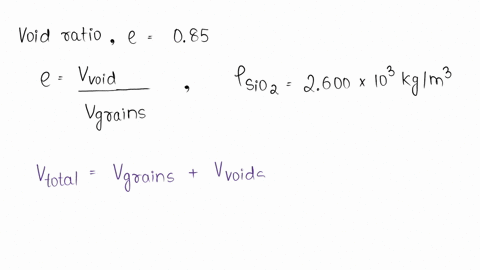 Void ratio, e = 0.85
e = V_void / V_grains , ρ_SiO2 = 2.600 × 10³ kg/m³
V_total = V_grains + V_voids